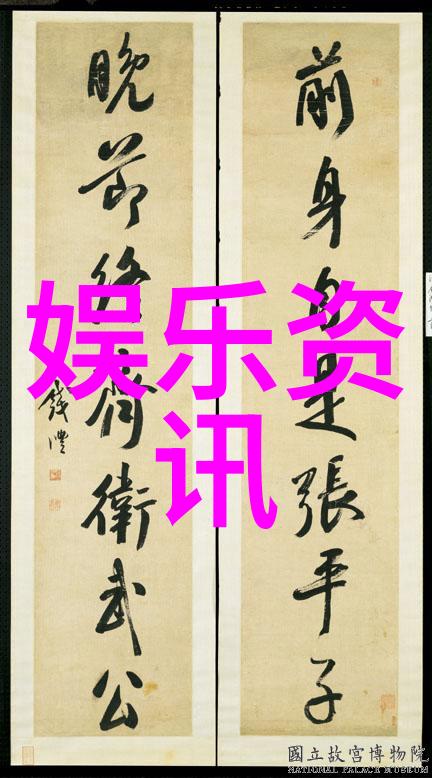 前身自是張平子
晚節終齊衛武公
錢灃
娱乐资
讯
國立故宮博物院
NATIONAL PALACE MUSEUM